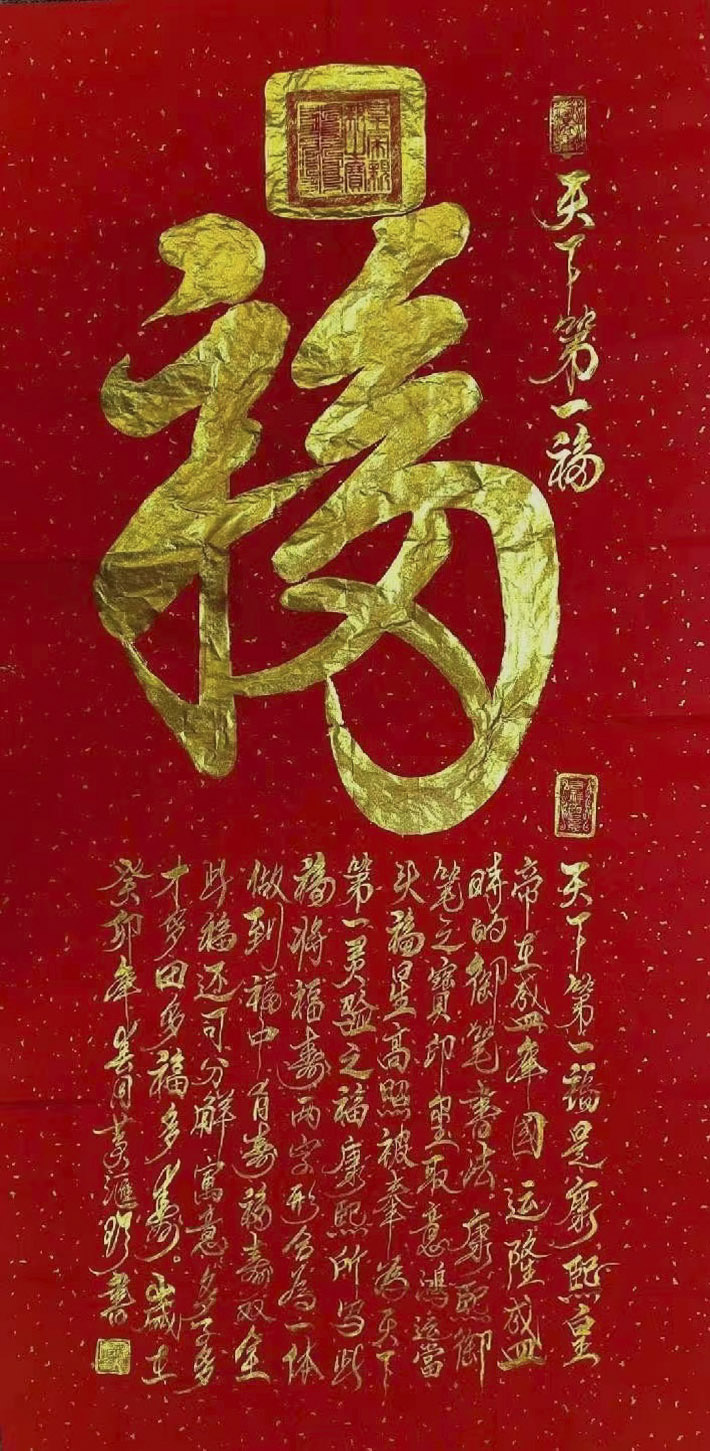 天下第一福
福
天下第一福是康熙皇
帝在盛年國运隆盛
時的御笔書法康熙御
笔之寶印璽取意鴻运當
头福星高照被奉為天下
第一灵驗之福康熙所写此
福將福壽两字形合為一体
做到福中有壽福壽双全
此福还可分解寓意多子多
才多田多福多壽。歲在
癸卯年春月黄滙明書